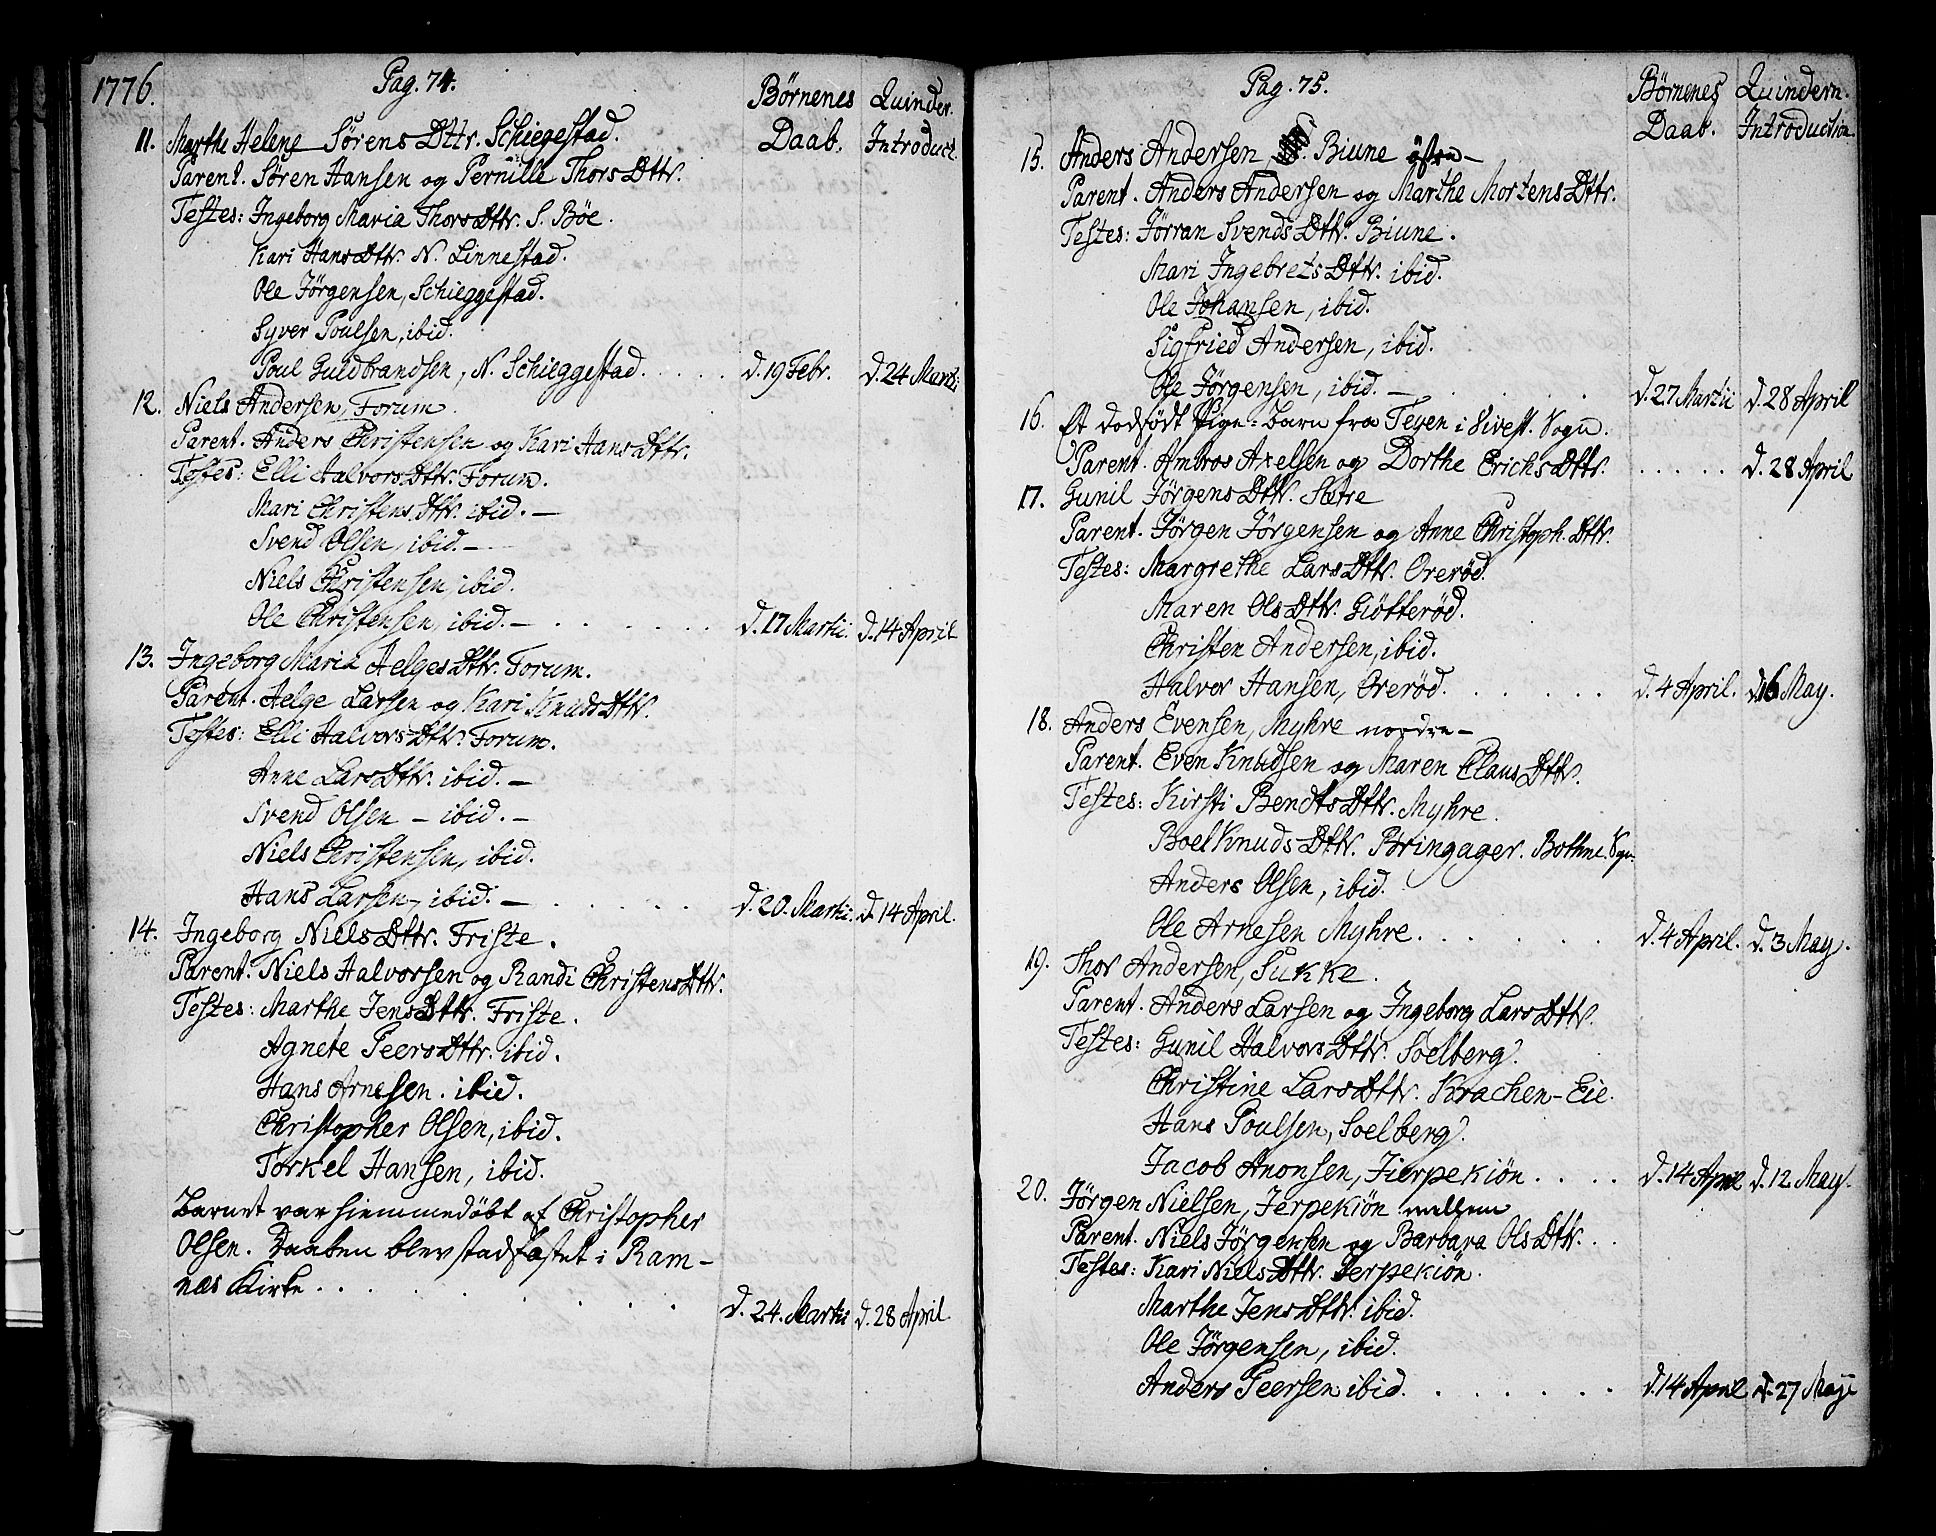 1776.
Pag. 74.
Børnenes Daab.
Quinder. Introduct.
11. Marthe Helene Sørens Dttr. Schiegestad.
Parent. Søren Hansen og Pernille Thors Dttr.
Testes: Ingeborg Maria Thors Dttr. S. Bøe.
Kari Hans Dttr. N. Linnestad.
Ole Jørgensen, Schieggestad.
Syver Poulsen, ibid.
Poul Guldbrandsen, N. Schieggestad. . . . . d. 19 Febr. d. 24 Martii
12. Niels Andersen, Forum.
Parent. Anders Christensen og Kari Hans Dttr.
Testes: Elli Halvors Dttr. Forum.
Mari Christens Dttr. ibid. —
Svend Olsen, ibid. —
Niels Christensen, ibid.
Ole Christensen, ibid. — . . . . . d. 17 Martii. d. 14 April
13. Ingeborg Maria Helges Dttr. Forum.
Parent. Helge Larsen og Kari Knuds Dttr.
Testes: Elli Halvors Dttr. Forum.
Anne Lars Dttr. ibid. —
Svend Olsen — ibid. —
Niels Christensen, ibid.
Hans Larsen, ibid. — . . . . . d. 20. Martii. d. 14 April.
14. Ingeborg Niels Dttr. Friste.
Parent. Niels Halvorsen og Randi Christens Dttr.
Testes: Marthe Jens Dttr. Friste.
Agnete Peers Dttr. ibid.
Hans Arnesen. ibid.
Christopher Olsen, ibid.
Torkel Hansen, ibid.
Barnet var hiemmedøbt af Christopher
Olsen. Daaben blev stadfæstet i Ram-
næs Kirke . . . . . . . d. 24. Martii d. 28 April.
Pag. 75.
Børnenes Daab.
Quindern. Introduction
15. Anders Andersen, Biune østre —
Parent. Anders Andersen og Marthe Mortens Dttr.
Testes: Jørran Svends Dttr. Biune.
Mari Ingebrets Dttr. ibid.
Ole Johansen, ibid.
Sigfried Andersen, ibid.
Ole Jørgensen, ibid. — . . . . d. 27 Martii d. 28 April
16. Et dødfødt Pige-Barn fra Teyen i Sivest. Sogn.
Parent. Ambros Axelsen og Dorthe Erichs Dttr. . . . . . d. 28 April
17. Gunil Jørgens Dttr. Sætre
Parent. Jørgen Jørgensen og Anne Christoph. Dttr.
Testes: Margrethe Lars Dttr. Orerød.
Maren Ols Dttr. Giøtterød.
Christen Andersen, ibid.
Halvor Hansen, Orerød. . . . . . d. 4 April. d. 16 May.
18. Anders Evensen, Myhre nordre —
Parent. Even Knudsen og Maren Claus Dttr.
Testes: Kirsti Bendts Dttr. Myhre.
Boel Knuds Dttr. Bringager. Bothne Sogn.
Anders Olsen, ibid.
Ole Arnesen Myhre. . . . . . d. 4 April. d. 3 May.
19. Thor Andersen, Sukke.
Parent. Anders Larsen og Ingeborg Lars Dttr.
Testes: Gunil Halvors Dttr. Soelberg.
Christine Lars Dttr. Krachen-Eie.
Hans Poulsen, Soelberg.
Jacob Anonsen, Jierpekiøn . . . . d. 14 April d. 12. May.
20. Jørgen Nielsen, Jerpekiøn mellem
Parent. Niels Jørgensen og Barbara Ols Dttr. . .
Testes: Kari Niels Dttr. Jerpekiøn.
Marthe Jens Dttr. ibid.
Ole Jørgensen, ibid.
Anders Peersen ibid. . . . . . . d. 14 April d. 27 Maji